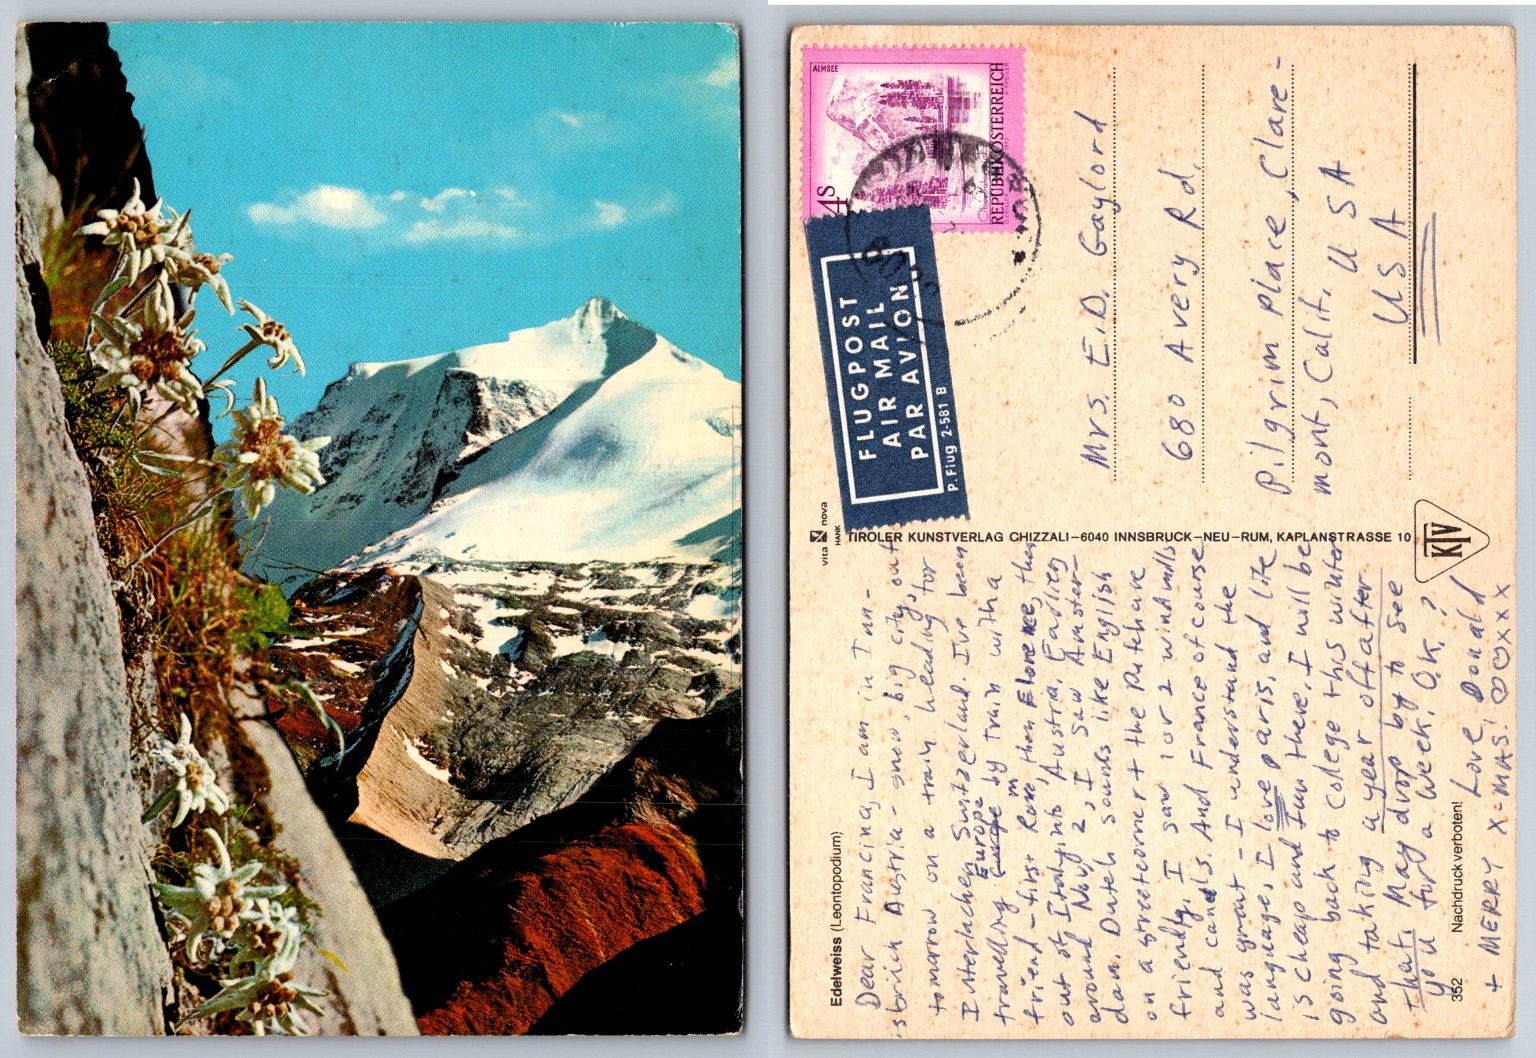 Edelweiss (Leontopodium)
Dear Francing, I am in Inn-
sbrich Austria - snow, big city, out
tomarrow on a train heading for
Interlachen Switzerland. I've been
travelling Europe by train with a
friend - first Rome, then Florence, then
out of Italy, into Austra, Earlier,
around Nov. 2, I saw Amster-
dam. Dutch sounds like English
on a streetcorner & the Dutch are
friendly. I saw 1 or 2 windmills
and canals. And France of course
was great - I understand the
language, I love paris, and life
is cheap and fun there. I will be
going back to College this winter
and taking a year off after
that. May drop by to see
you for a week. O.K.?
Love Donald
+ MERRY X-MAS! ♡♡xxx
352
Nachdruck verboten!
vita nova
HANK
TIROLER KUNSTVERLAG CHIZZALI–6040 INNSBRUCK–NEU–RUM, KAPLANSTRASSE 10
KTV
ALMSEE
4S
REPUBLIK ÖSTERREICH
FLUGPOST
AIR MAIL
PAR AVION
P. Flug 2-581 B
Mrs. E.D. Gaylord
680 Avery Rd,
Pilgrim place, Clare-
mont, Calif, USA
USA